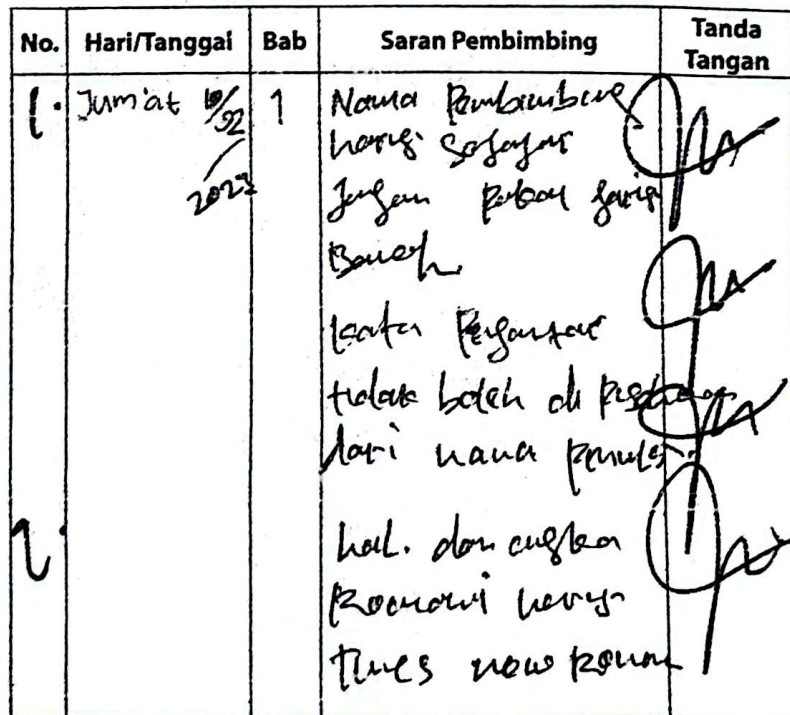 No. Hari/Tanggal Bab Saran Pembimbing Tanda Tangan
1. Jum'at 1 Nama Pembimbing
harus sejajar
2023 Jangan pakai garis
Bawah
kata Pengantar
tidak boleh di pisahkan
dari nama penulis
2. hal. dan angka
Romawi harus
Times new Roman